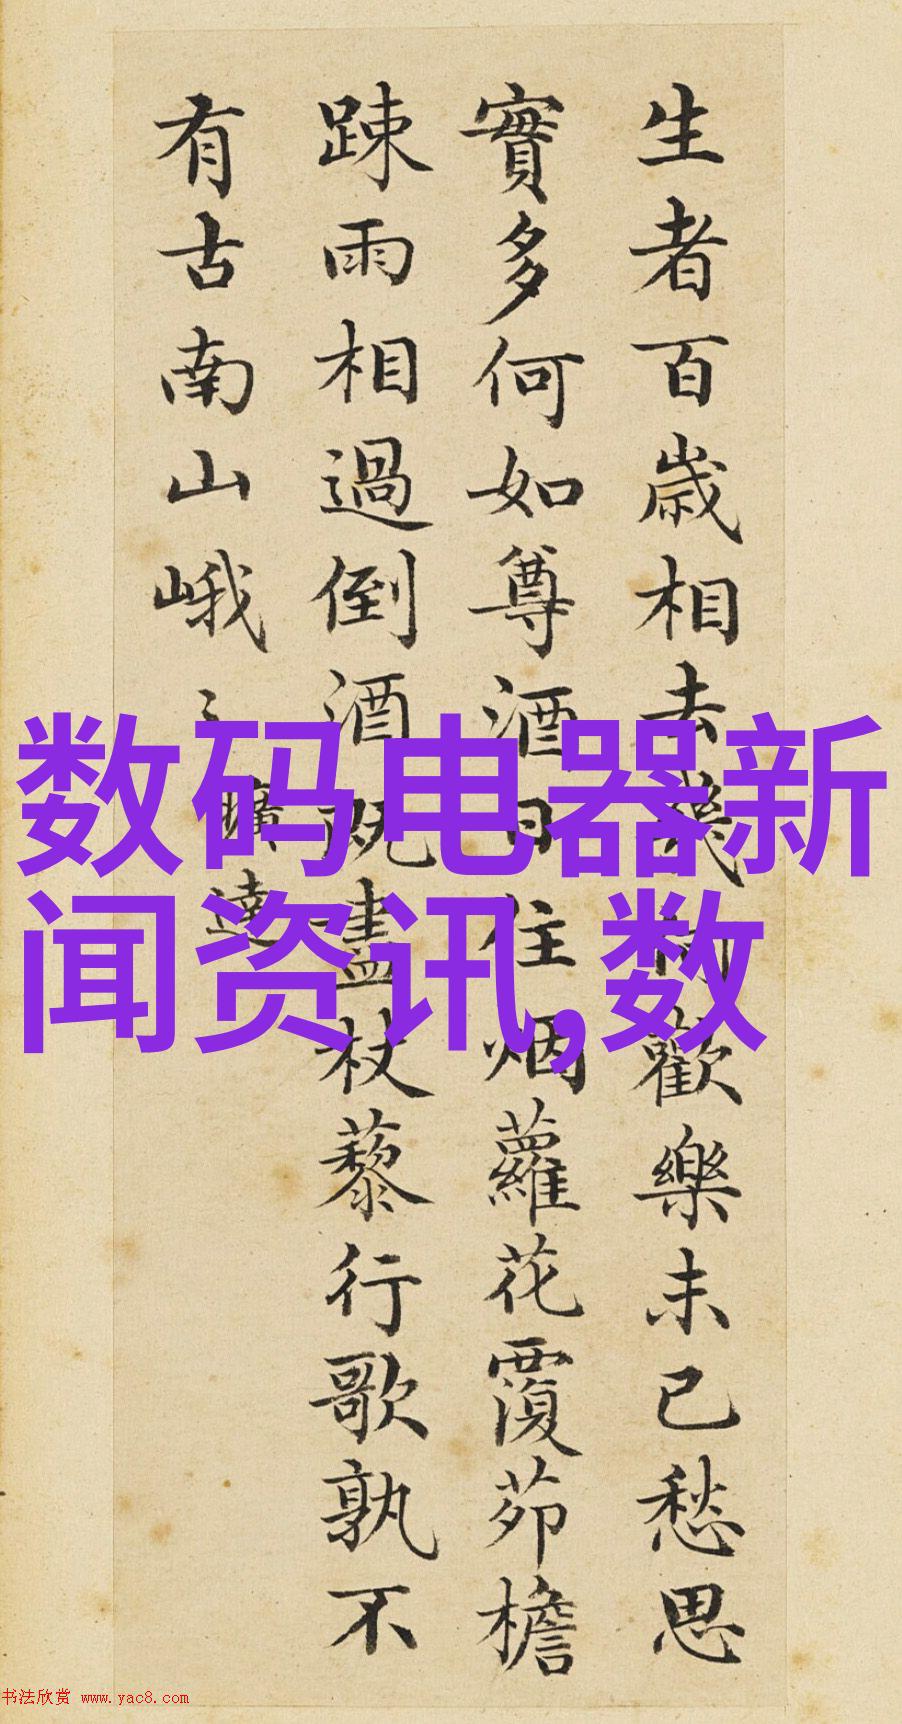 生者百歲相去幾何歡樂未已愁思
實多何如尊酒日往烟蘿花覆茆檐
踈雨相過倒酒既盡杖藜行歌孰不
有古南山峨〻曠達
数码电器新
闻资讯,数
书法欣赏 www.yac8.com